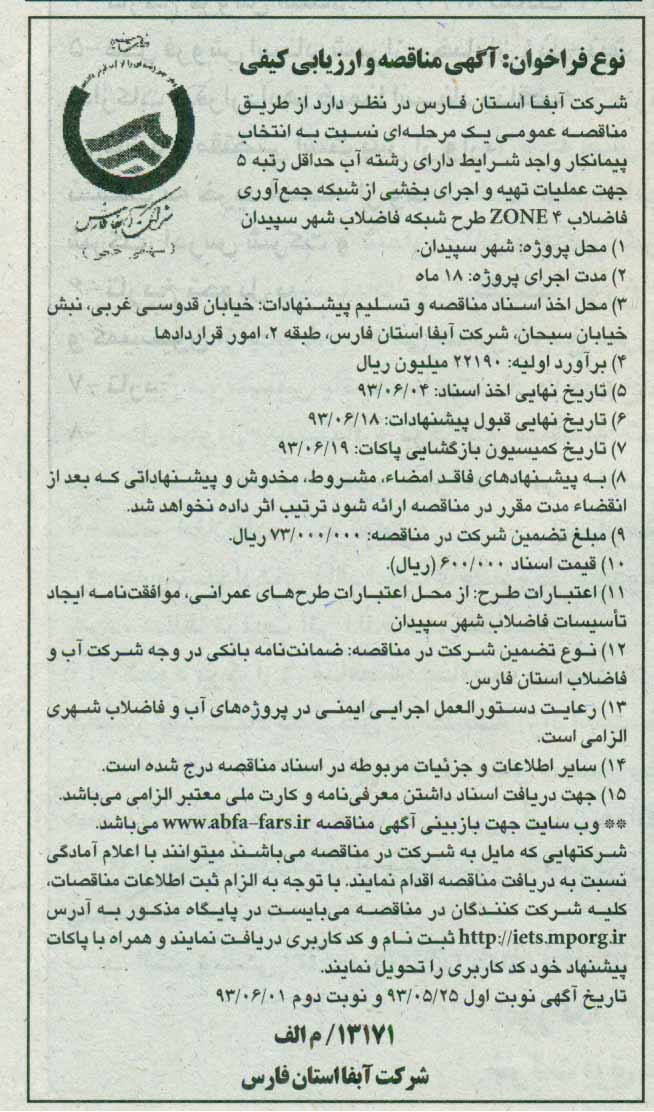 نوع فراخوان: آگهی مناقصه و ارزیابی کیفی
شرکت آبفا استان فارس در نظر دارد از طریق
مناقصه عمومی یک مرحله‌ای نسبت به انتخاب
پیمانکار واجد شرایط دارای رشته آب حداقل رتبه ۵
جهت عملیات تهیه و اجرای بخشی از شبکه جمع‌آوری
فاضلاب ZONE ۴ طرح شبکه فاضلاب شهر سپیدان
شرکت آبفا فارس
(سهامی خاص)
۱) محل پروژه: شهر سپیدان.
۲) مدت اجرای پروژه: ۱۸ ماه
۳) محل اخذ اسناد مناقصه و تسلیم پیشنهادات: خیابان قدوسی غربی، نبش
خیابان سبحان، شرکت آبفا استان فارس، طبقه ۲، امور قراردادها
۴) برآورد اولیه: ۲۲۱۹۰ میلیون ریال
۵) تاریخ نهایی اخذ اسناد: ۹۳/۰۶/۰۴
۶) تاریخ نهایی قبول پیشنهادات: ۹۳/۰۶/۱۸
۷) تاریخ کمیسیون بازگشایی پاکات: ۹۳/۰۶/۱۹
۸) به پیشنهادهای فاقد امضاء، مشروط، مخدوش و پیشنهاداتی که بعد از
انقضاء مدت مقرر در مناقصه ارائه شود ترتیب اثر داده نخواهد شد.
۹) مبلغ تضمین شرکت در مناقصه: ۷۳/۰۰۰/۰۰۰ ریال.
۱۰) قیمت اسناد ۶۰۰/۰۰۰ (ریال).
۱۱) اعتبارات طرح: از محل اعتبارات طرح‌های عمرانی، موافقت‌نامه ایجاد
تأسیسات فاضلاب شهر سپیدان
۱۲) نوع تضمین شرکت در مناقصه: ضمانت‌نامه بانکی در وجه شرکت آب و
فاضلاب استان فارس.
۱۳) رعایت دستورالعمل اجرایی ایمنی در پروژه‌های آب و فاضلاب شهری
الزامی است.
۱۴) سایر اطلاعات و جزئیات مربوطه در اسناد مناقصه درج شده است.
۱۵) جهت دریافت اسناد داشتن معرفی‌نامه و کارت ملی معتبر الزامی می‌باشد.
** وب سایت جهت بازبینی آگهی مناقصه www.abfa-fars.ir می‌باشد.
شرکتهایی که مایل به شرکت در مناقصه می‌باشند میتوانند با اعلام آمادگی
نسبت به دریافت مناقصه اقدام نمایند. با توجه به الزام ثبت اطلاعات مناقصات،
کلیه شرکت کنندگان در مناقصه می‌بایست در پایگاه مذکور به آدرس
http://iets.mporg.ir ثبت نام و کد کاربری دریافت نمایند و همراه با پاکات
پیشنهاد خود کد کاربری را تحویل نمایند.
تاریخ آگهی نوبت اول ۹۳/۰۵/۲۵ و نوبت دوم ۹۳/۰۶/۰۱
۱۳۱۷۱/ م الف
شرکت آبفا استان فارس